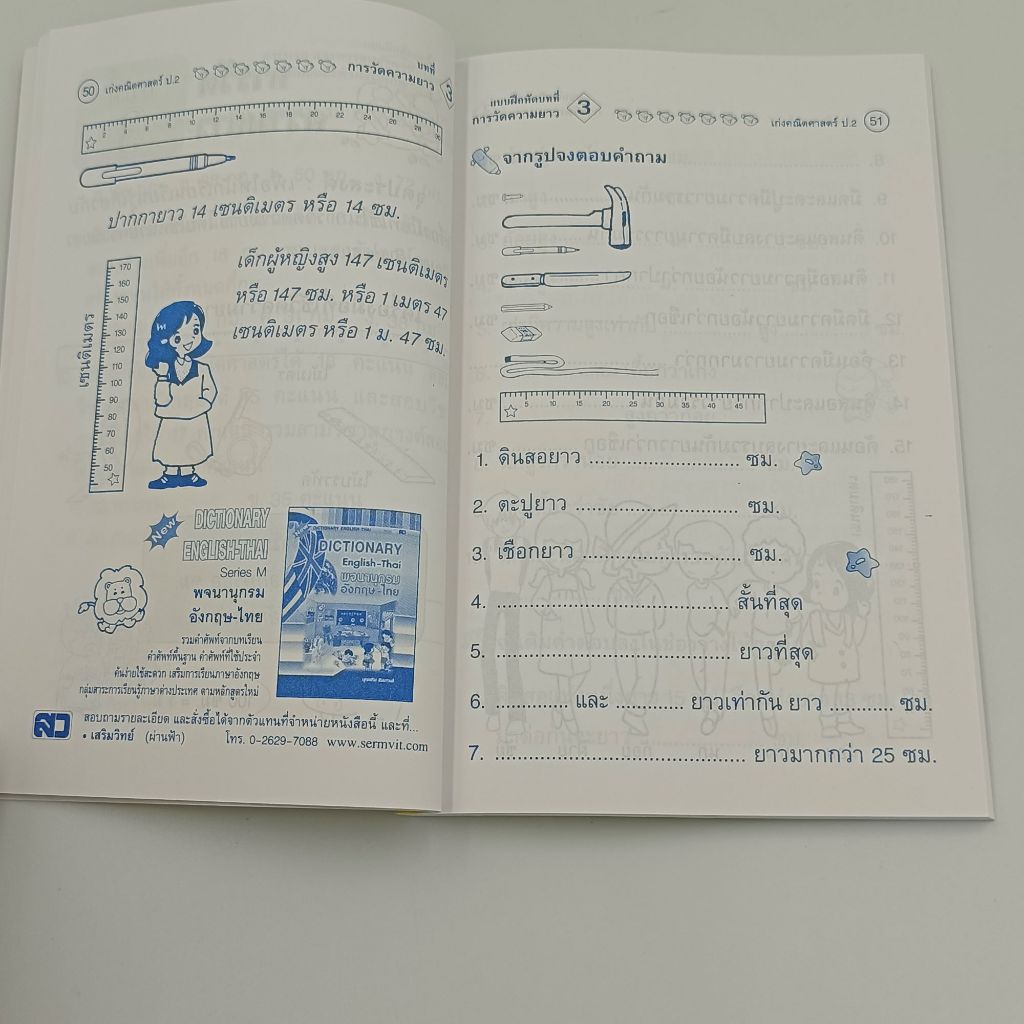 50 เก่งคณิตศาสตร์ ป.2 การวัดความยาว บทที่ 3
2 4 6 8 10 12 14 16 18 20 22 24 26 28 30
ปากกายาว 14 เซนติเมตร หรือ 14 ซม.
เด็กผู้หญิงสูง 147 เซนติเมตร
หรือ 147 ซม. หรือ 1 เมตร 47
เซนติเมตร หรือ 1 ม. 47 ซม.
เซนติเมตร
170
160
150
140
130
120
110
100
90
80
70
60
50
New DICTIONARY
ENGLISH-THAI
Series M
พจนานุกรม
อังกฤษ-ไทย
รวมคำศัพท์จากบทเรียน
คำศัพท์พื้นฐาน คำศัพท์ที่ใช้ประจำ
ค้นง่ายใช้สะดวก เสริมการเรียนภาษาอังกฤษ
กลุ่มสาระการเรียนรู้ภาษาต่างประเทศ ตามหลักสูตรใหม่
DICTIONARY ENGLISH-THAI
DICTIONARY
English-Thai
พจนานุกรม
อังกฤษ-ไทย
สว สอบถามรายละเอียด และสั่งซื้อได้จากตัวแทนที่จำหน่ายหนังสือนี้ และที่...
• เสริมวิทย์ (ผ่านฟ้า) โทร. 0-2629-7088 www.sermvit.com
แบบฝึกหัดบทที่ 3
การวัดความยาว เก่งคณิตศาสตร์ ป.2 51
จากรูปจงตอบคำถาม
5 10 15 20 25 30 35 40 45
1. ดินสอยาว ............................ ซม.
2. ตะปูยาว ............................ ซม.
3. เชือกยาว ............................ ซม.
4. ........................................ สั้นที่สุด
5. ........................................ ยาวที่สุด
6. ............. และ ............ ยาวเท่ากัน ยาว ........... ซม.
7. ........................................... ยาวมากกว่า 25 ซม.